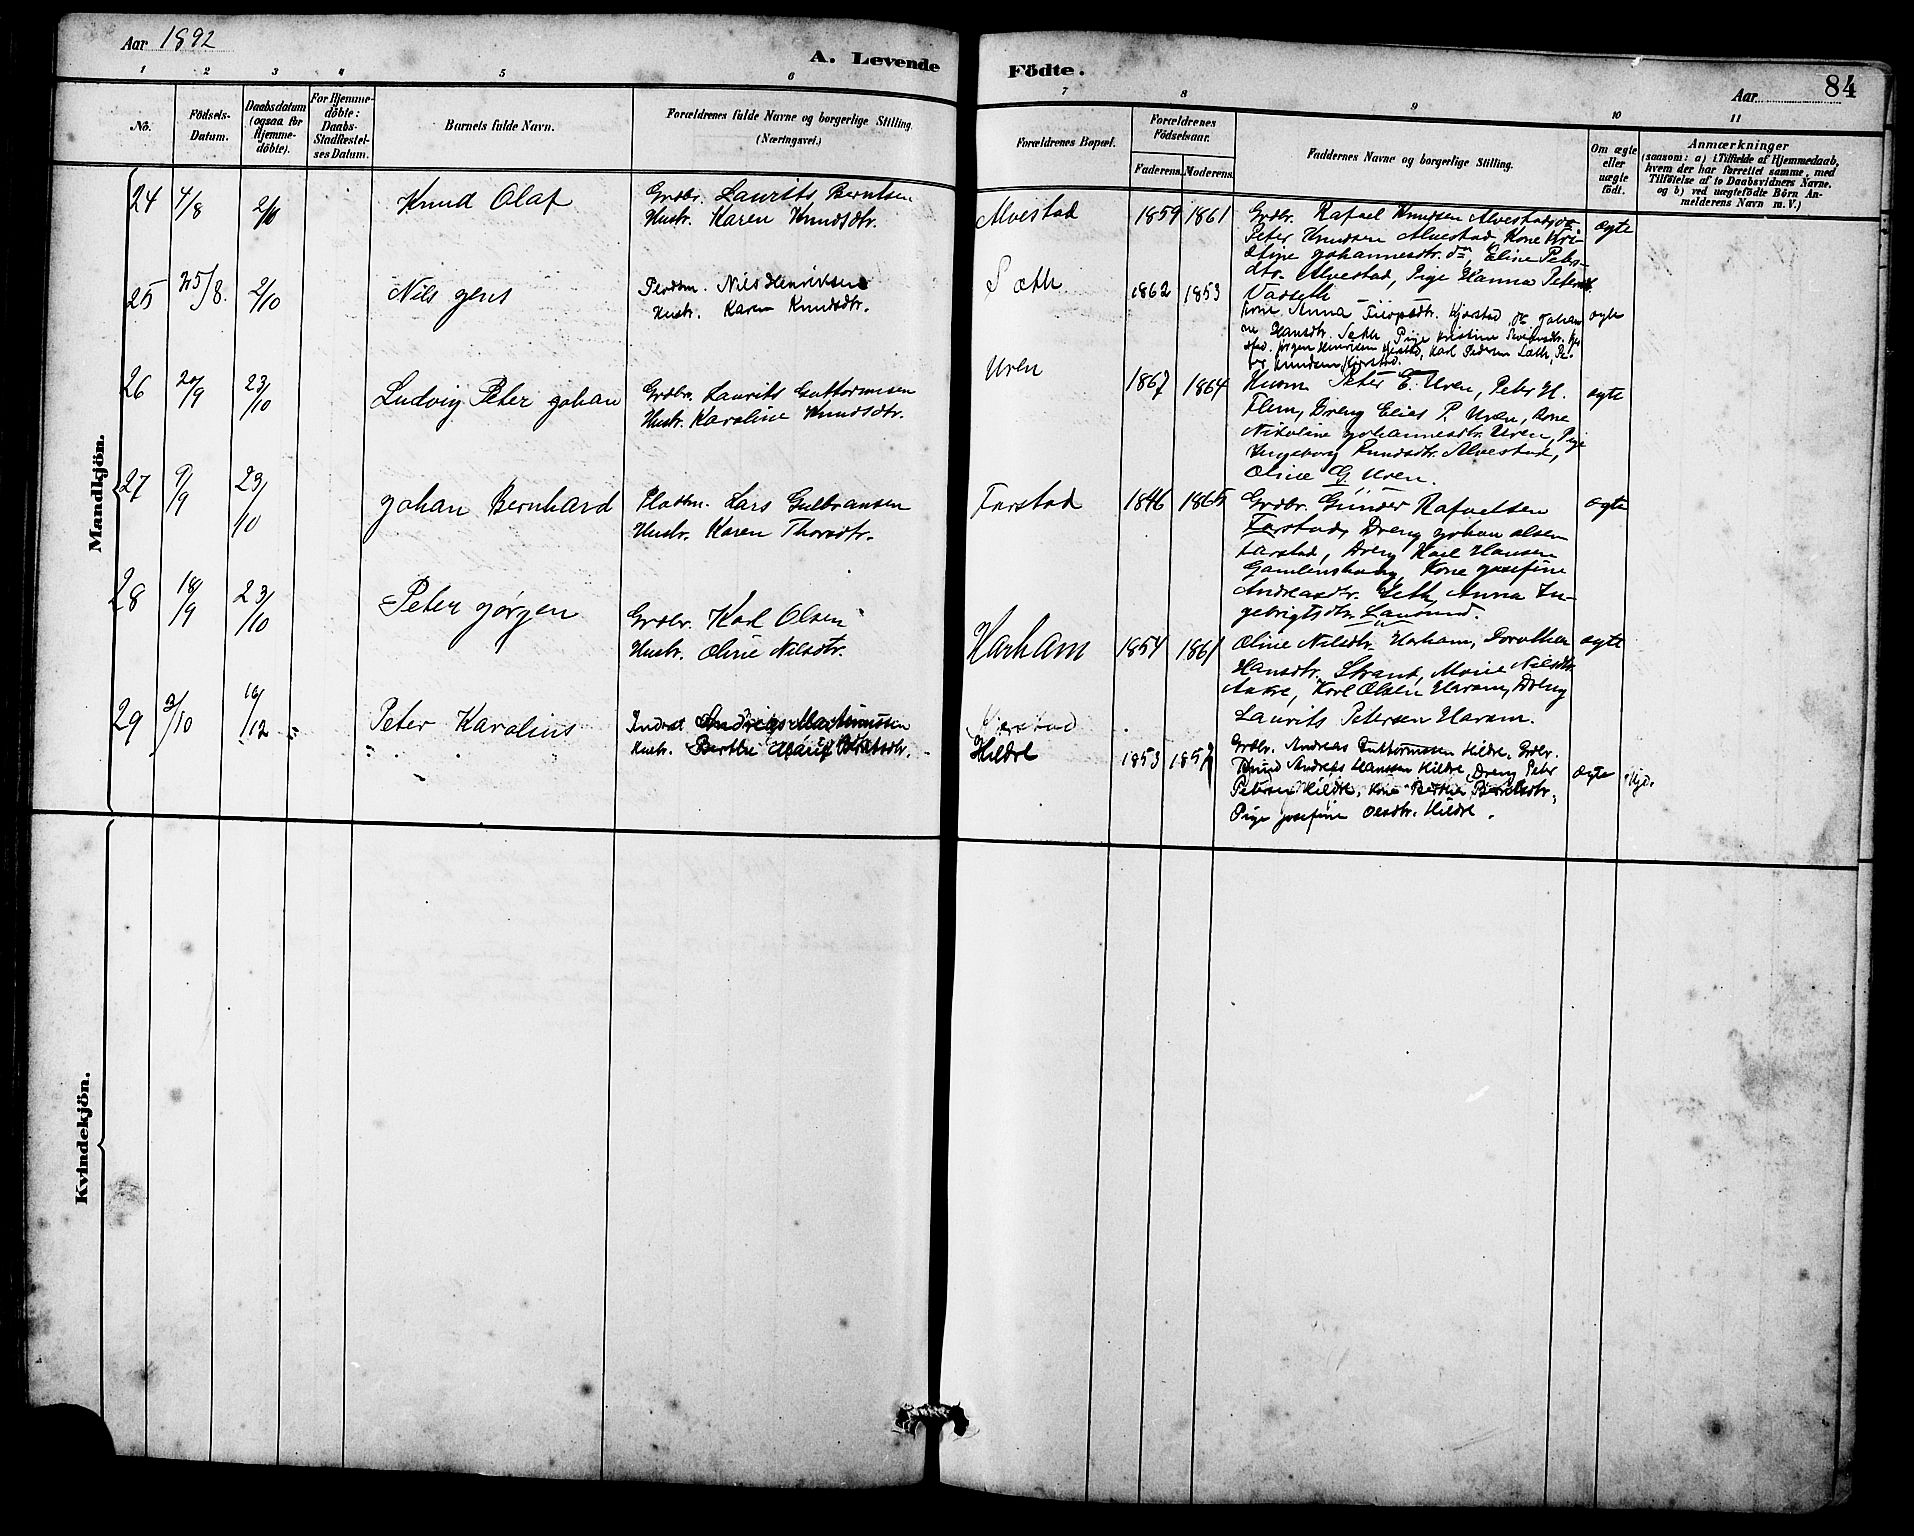 Aar 1892
A. Levende
Födte.
Aar
84
1 2 3 4 5 6 7 8 9 10 11
No.
Födsels-
Datum.
Daabsdatum
(ogsaa for
Hjemme-
döbte).
For Hjemme-
döbte:
Daabs-
Stadfæstel-
ses Datum.
Barnets fulde Navn.
Forældrenes fulde Navne og borgerlige Stilling.
(Næringsvei.)
Forældrenes Bopæl.
Forældrenes
Födselsaar.
Faderens. Moderens.
Faddernes Navne og borgerlige Stilling.
Om ægte
eller
uægte
født.
Anmærkninger
(saasom: a) i Tilfælde af Hjemmedaab,
hvem der har forrettet samme, med
Tilföielse af to Daabsvidners Navne.
og b) ved uægtefödte Börn An-
melderens Navn m. V.)
Mandkjön.
24 4/8 2/10 Knud Olaf
Grdbr. Laurits Berntsen
Hustr. Karen Knudsdtr.
Alvestad 1859 1861
Grdbr. Rafael Knudsen Alvestad,
Peter Knudsen Alvestad, Kone Kri-
stine Johannesdtr. do, Eline Peters-
dtr. Alvestad, Pige Hanna
ægte
25 25/8. 2/10 Nils Jens
Nils Henriksen
Hustr. Karen Knudsdtr.
Sæth 1862 1853
Kone Anna Hjørstad, og Johan
ne Hansdtr. Sæth, Pige Kristine
Jørgen Henriksen Karl Pedersen Sæth,
Knudsen Hjørstad.
ægte
26 20/9 23/10 Ludvig Peter Johan
Grdbr. Laurits Guttormsen
Hustr. Karoline Knudsdtr.
Uren 1867 1864
Husm Peter E. Uren, Peter H.
Flem, Dreng Elias P. Uren, Kone
Nikoline Johannesdtr. Uren, Pige
Ingeborg Knudsdtr. Alvestad,
Oline G. Uren.
ægte
27 9/9 23/10 Johan Bernhard
Pladsm. Lars Gulbransen
Hustr. Karen Thorsdtr.
Farstad 1846 1865
Grdbr. Gunder Rafaelsen
Farstad, Dreng Johan Olsen
Farstad, Dreng Karl Hansen
Kone Josefine
Andreasdtr. Sæth, Anna In-
gebrigtsdtr.
ægte
28 18/9 23/10 Peter Jørgen
Grdbr. Karl Olsen
Hustr. Oline Nilsdtr.
Harham 1854 1861
Oline Nilsdtr. Harham, Dorothea
Hansdtr. Strand, Marie Nilsdtr.
Aakre, Karl Olsen Haram, Dreng
Laurits Petersen Haram.
ægte
29 3/10 /12 " Peter Karolius
Inderst Andreas
Hustr. Berthe
Hildre 1853
Grdbr. Andreas Guttormsen Hildre, Grdbr.
Knud Andreas Hanssen Hildre, Dreng Peter
Petersen Hildre, Kone Berthe
Pige Josefine Olsdtr. Hildre.
ægte
Kvindekjön.